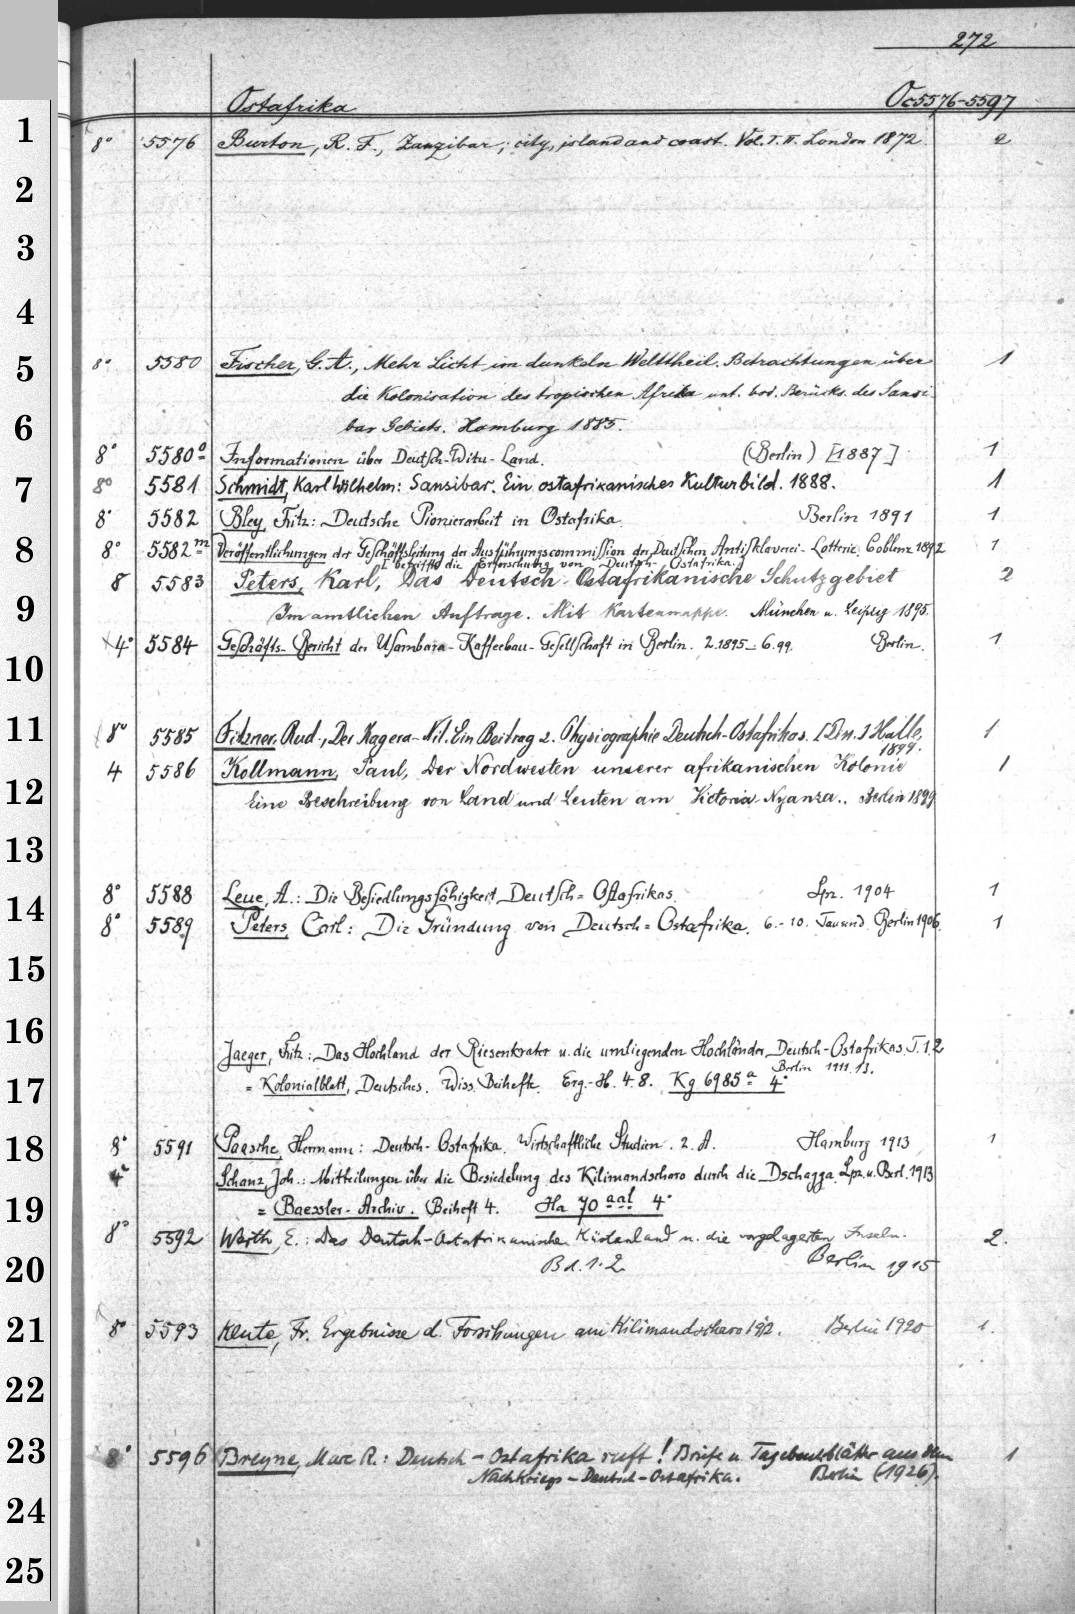 272
Ostafrika Oc 5576-5597
1
8° 5576 Burton, R. F., Zanzibar; city, island and coast. Vol. I. II. London 1872. 2
2
3
4
5
8° 5580 Fischer, G. A., Mehr Licht im dunkeln Welttheil. Betrachtungen über 1
die Kolonisation des tropischen Afrika unt. bes. Berücks. des Sansi-
6
bar Gebiets. Hamburg 1885.
8° 5580a Informationen über Deutsch-Witu-Land. (Berlin) [1887] 1
7
8° 5581 Schmidt, Karl Wilhelm: Sansibar. Ein ostafrikanisches Kulturbild. 1888. 1
8° 5582 Bley, Fritz: Deutsche Pionierarbeit in Ostafrika. Berlin 1891 1
8
8° 5582m Veröffentlichungen der Geschäftsleitung der Ausführungscommission der Deutschen Antisklaverei-Lotterie. Coblenz 1892 1
[betrifft die Erforschung von Deutsch-Ostafrika.]
8 5583 Peters, Karl, Das Deutsch-Ostafrikanische Schutzgebiet 2
9
Im amtlichen Auftrage. Mit Kartenmappe. München u. Leipzig 1895.
4° 5584 Geschäfts-Bericht der Usambara-Kaffeebau-Gesellschaft in Berlin. 2.1895-6.99. Berlin. 1
10
11
8° 5585 Fitzner, Rud., Der Kagera-Nil. Ein Beitrag z. Physiographie Deutsch-Ostafrikas. [Diss.] Halle, 1
1899.
4 5586 Kollmann, Paul, Der Nordwesten unserer afrikanischen Kolonie 1
12
Eine Beschreibung von Land und Leuten am Victoria Nyanza.. Berlin 1899
13
8° 5588 Leue, A.: Die Besiedlungsfähigkeit Deutsch-Ostafrikas. Lpz. 1904 1
14
8° 5589 Peters, Carl: Die Gründung von Deutsch-Ostafrika. 6.-10. Tausend. Berlin 1906. 1
15
16
Jaeger, Fritz: Das Hochland der Riesenkrater u. die umliegenden Hochländer Deutsch-Ostafrikas. T. 1.2
Berlin 1911.13.
17
= Kolonialblatt, Deutsches. Wiss. Beihefte. Erg.-H. 4. 8. Kg 6985a 4°
18
8° 5591 Paasche, Hermann: Deutsch-Ostafrika. Wirtschaftliche Studien. 2. A. Hamburg 1913 1
4° Schanz, Joh.: Mitteilungen über die Besiedelung des Kilimandscharo durch die Dschagga. Lpz. u. Berl. 1913
19
= Baessler-Archiv. Beiheft 4. Ha 70 aal 4°
8° 5592 Werth, E.: Das Deutsch-Ostafrikanische Küstenland u. die vorgelagerten Inseln. 2.
20
Bd. 1. 2. Berlin 1915
21
8° 5593 Klute, Fr. Ergebnisse d. Forschungen am Kilimandscharo 1912. Berlin 1920 1.
22
23
8° 5596 Breyne, Marc R.: Deutsch-Ostafrika ruft! Briefe u. Tagebuchblätter aus dem 1
Nachkriegs-Deutsch-Ostafrika. Berlin (1926).
24
25